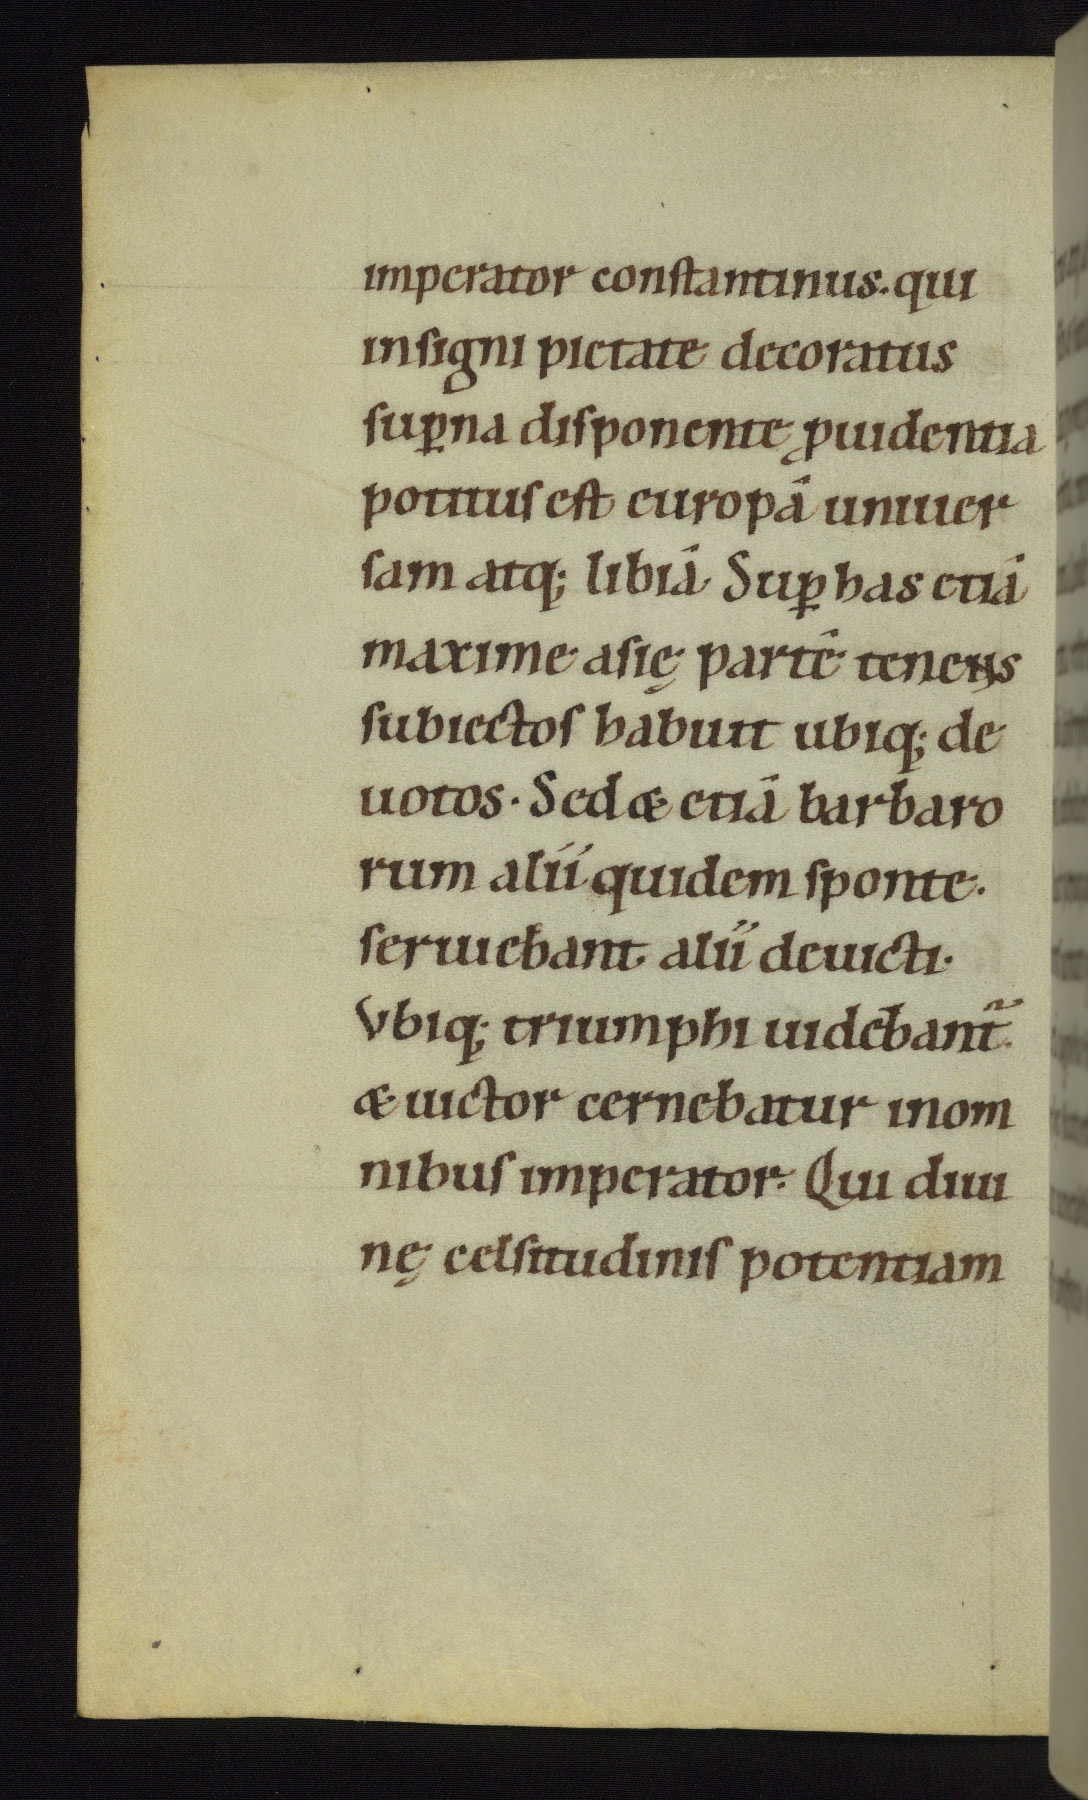 imperator constantinus. qui
insigni pietate decoratus
suꝑna disponente ꝓuidentia
potitus est europā uniuer
sam atq; libiā. Suꝑ has etiā
maxime asię partē tenens
subiectos habuit ubiq; de
uotos. Sed & etiā barbaro
rum alii quidem sponte.
seruiebant. alii deuicti.
Vbiq; triumphi uidebant᷑.
& uictor cernebatur inom
nibus imperator. Qui diui
nę celsitudinis potentiam